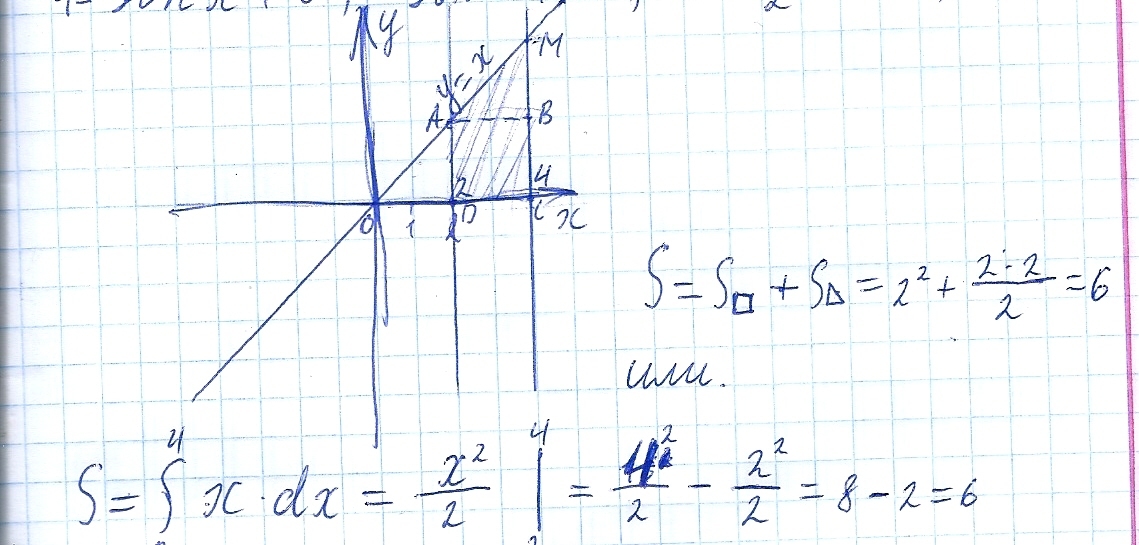 y
M
y = x
A B
2 4
0 1 2 D C x
S = S□ + S△ = 2² + (2·2)/2 = 6
или.
S = ∫⁴ x·dx = x²/2 |⁴ = 4²/2 − 2²/2 = 8 − 2 = 6